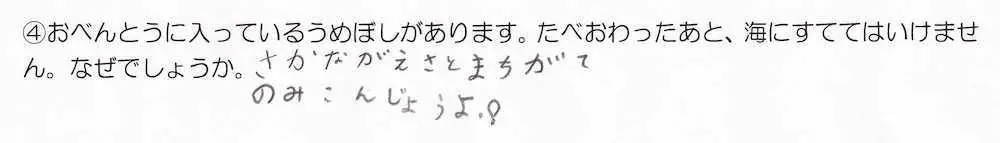 ④おべんとうに入っているうめぼしがあります。たべおわったあと、海にすててはいけませ
ん。なぜでしょうか。さかながえさとまちがて
のみこんじょうよ。?